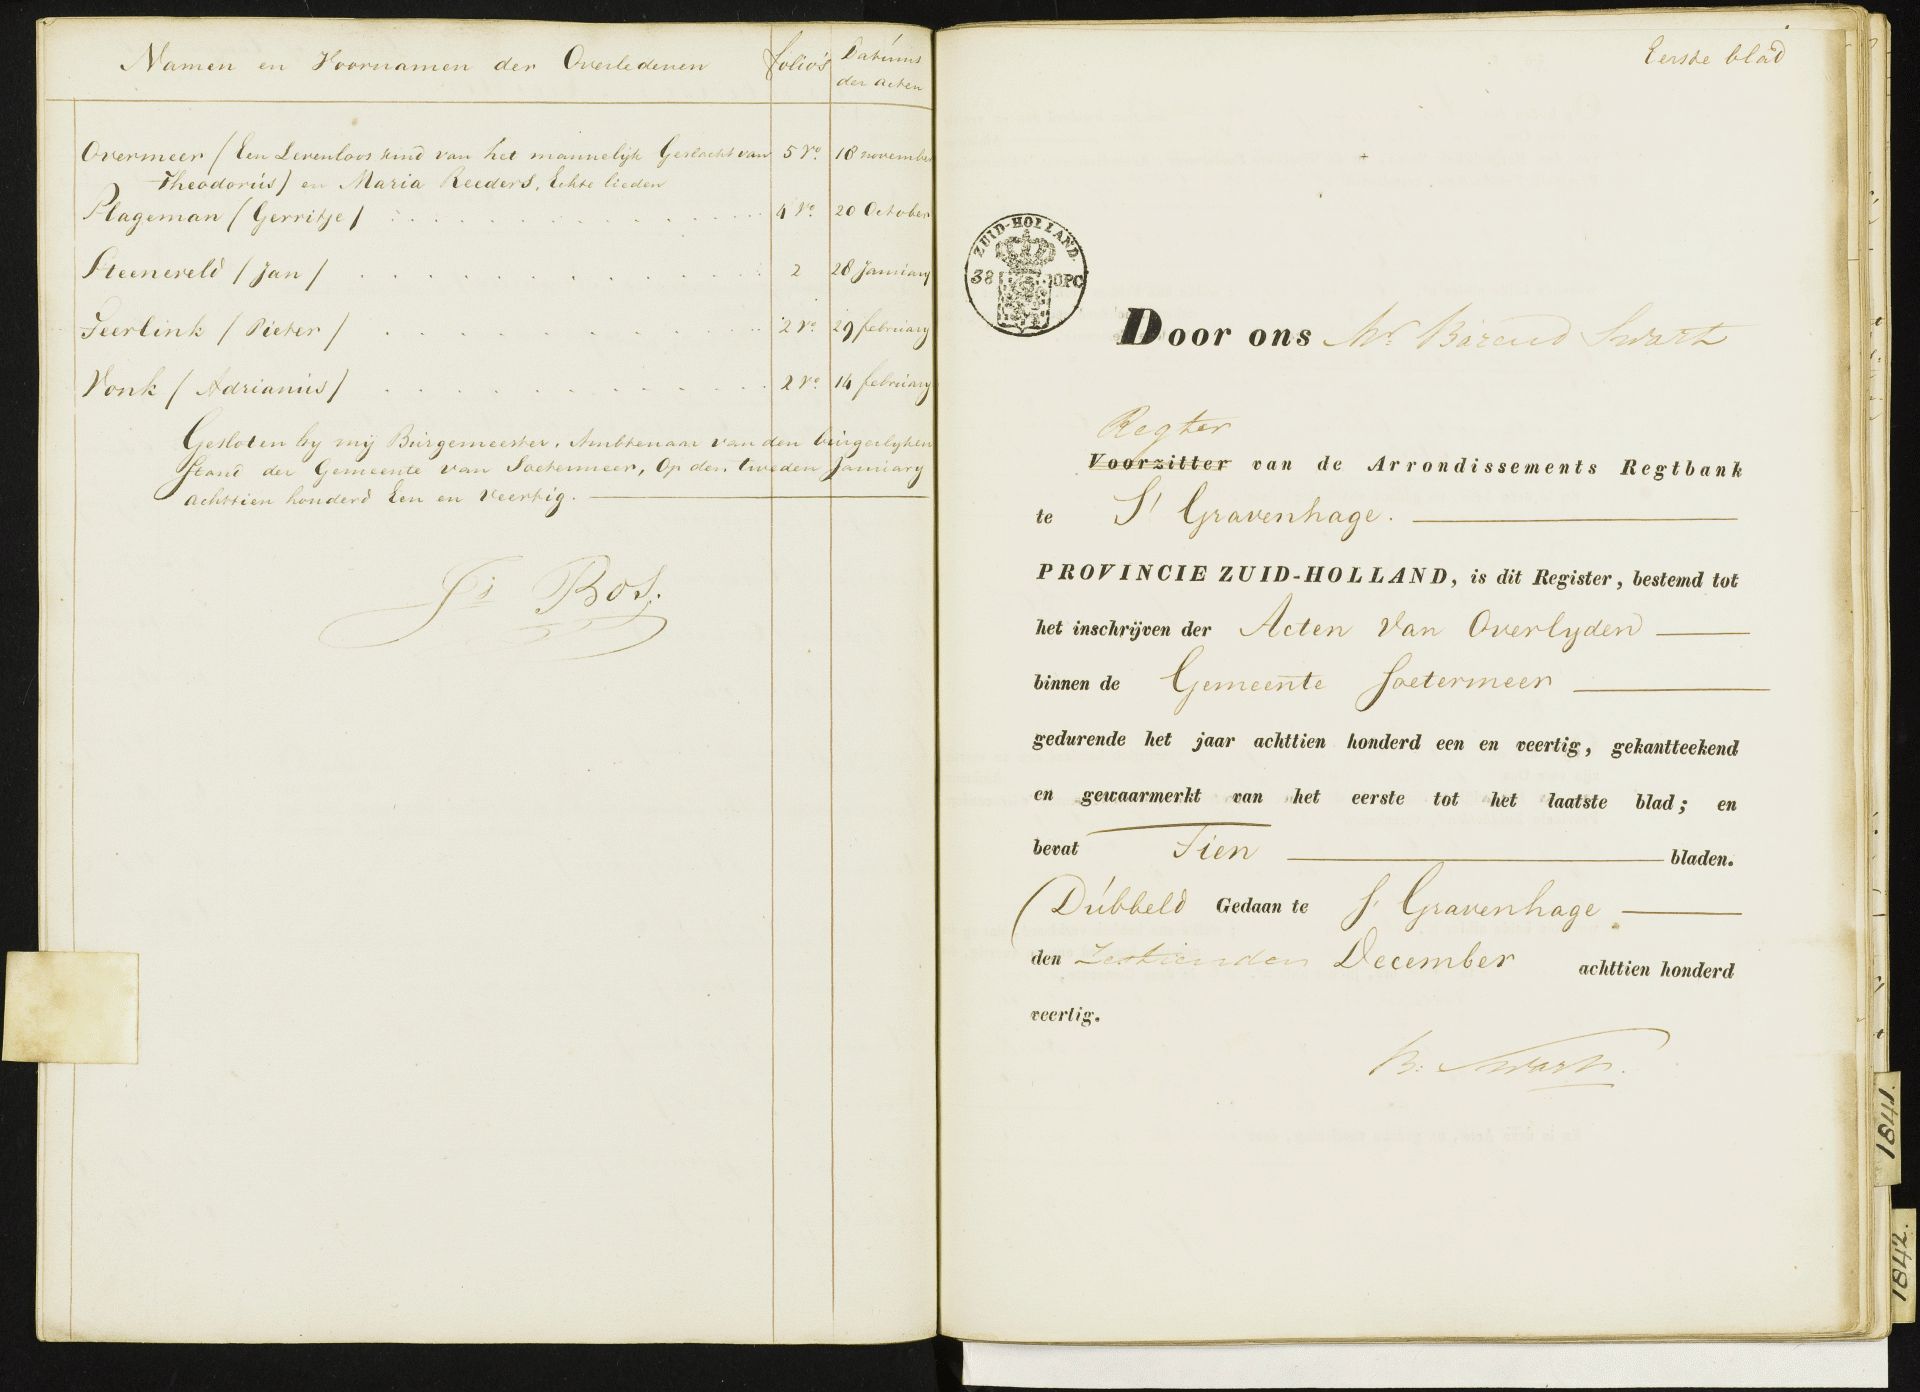 Namen en Voornamen der Overledenen folio's Datums
der acten
Overmeer (Een Levenloos kind van het mannelijk Geslacht van 5 vo. 18 november
Theodorus) en Maria Reeders, Echte lieden
Plageman (Gerritje) 4 vo. 20 October
Steenereld (Jan) 2 28 January
Teerlink (Pieter) 2 vo. 29 february
Vonk (Adrianus) 2 vo. 14 february
Gesloten by mij Burgemeester, Ambtenaar van den burgerlyken
Stand der Gemeente van Soetermeer, Op den tweeden January
achttien honderd Een en Veertig.
Js Bos.
Eerste blad
ZUID-HOLLAND.
38 10PC
Door ons Mr. Barend Swart
Regter
Voorzitter van de Arrondissements Regtbank
te S' Gravenhage.
PROVINCIE ZUID-HOLLAND, is dit Register, bestemd tot
het inschrijven der Acten Van Overlyden
binnen de Gemeente Soetermeer
gedurende het jaar achttien honderd een en veertig, gekantteekend
en gewaarmerkt van het eerste tot het laatste blad; en
bevat Tien bladen.
Dubbeld Gedaan te S. Gravenhage
den Zestienden December achttien honderd
veertig.
B. Swart.
1841.
1842.